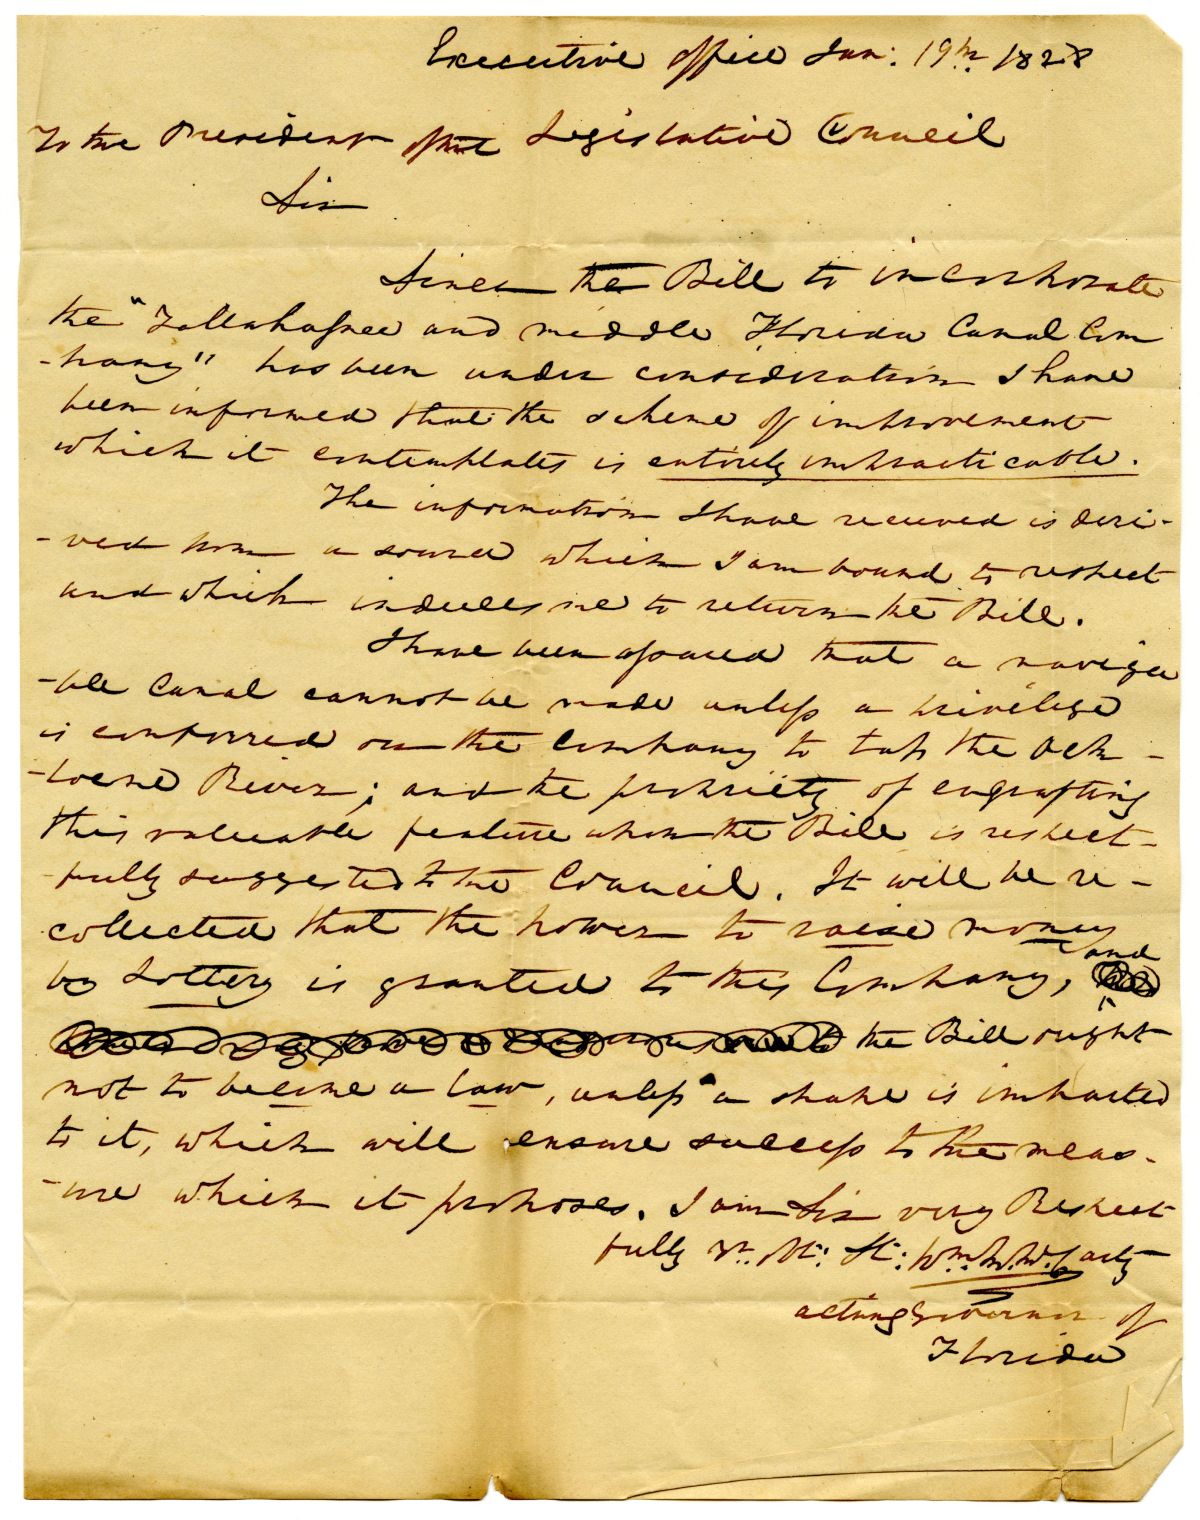 Executive office Jan: 19th 1828
To the President of the Legislative Council
Sir
Since the Bill to incorporate
the "Tallahassee and middle Florida Canal Com
-pany" has been under consideration I have
been informed that the scheme of improvement
which it contemplates is entirely impracticable.
The information I have received is deri-
-ved from a source which I am bound to respect
and which induces me to return the Bill.
I have been assured that a naviga
-ble Canal cannot be made unless a privilege
is conferred on the Company to tap the Ock-
-locne River; and the propriety of engrafting
this valuable feature upon the Bill is respect-
-fully suggested to the Council. It will be re-
collected that the power to raise money
by Lottery is granted to this Company, and
the Bill ought
not to become a law, unless a shape is imparted
to it, which will ensure success to the meas-
-ure which it proposes. I am Sir very Respect
fully Yr. Ob: St: Wm. M. McCarty
acting Governor of
Florida